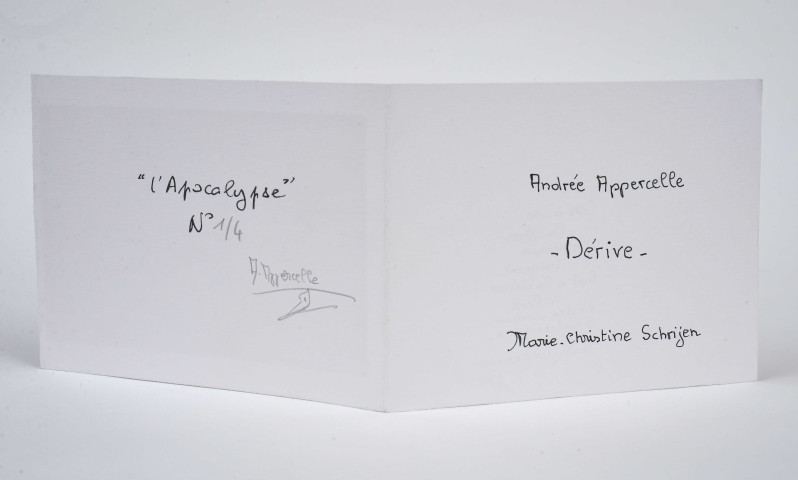 "l'Apocalypse"
N° 1/4
A. Appercelle
Andrée Appercelle
- Dérive -
Marie-Christine Schrijen